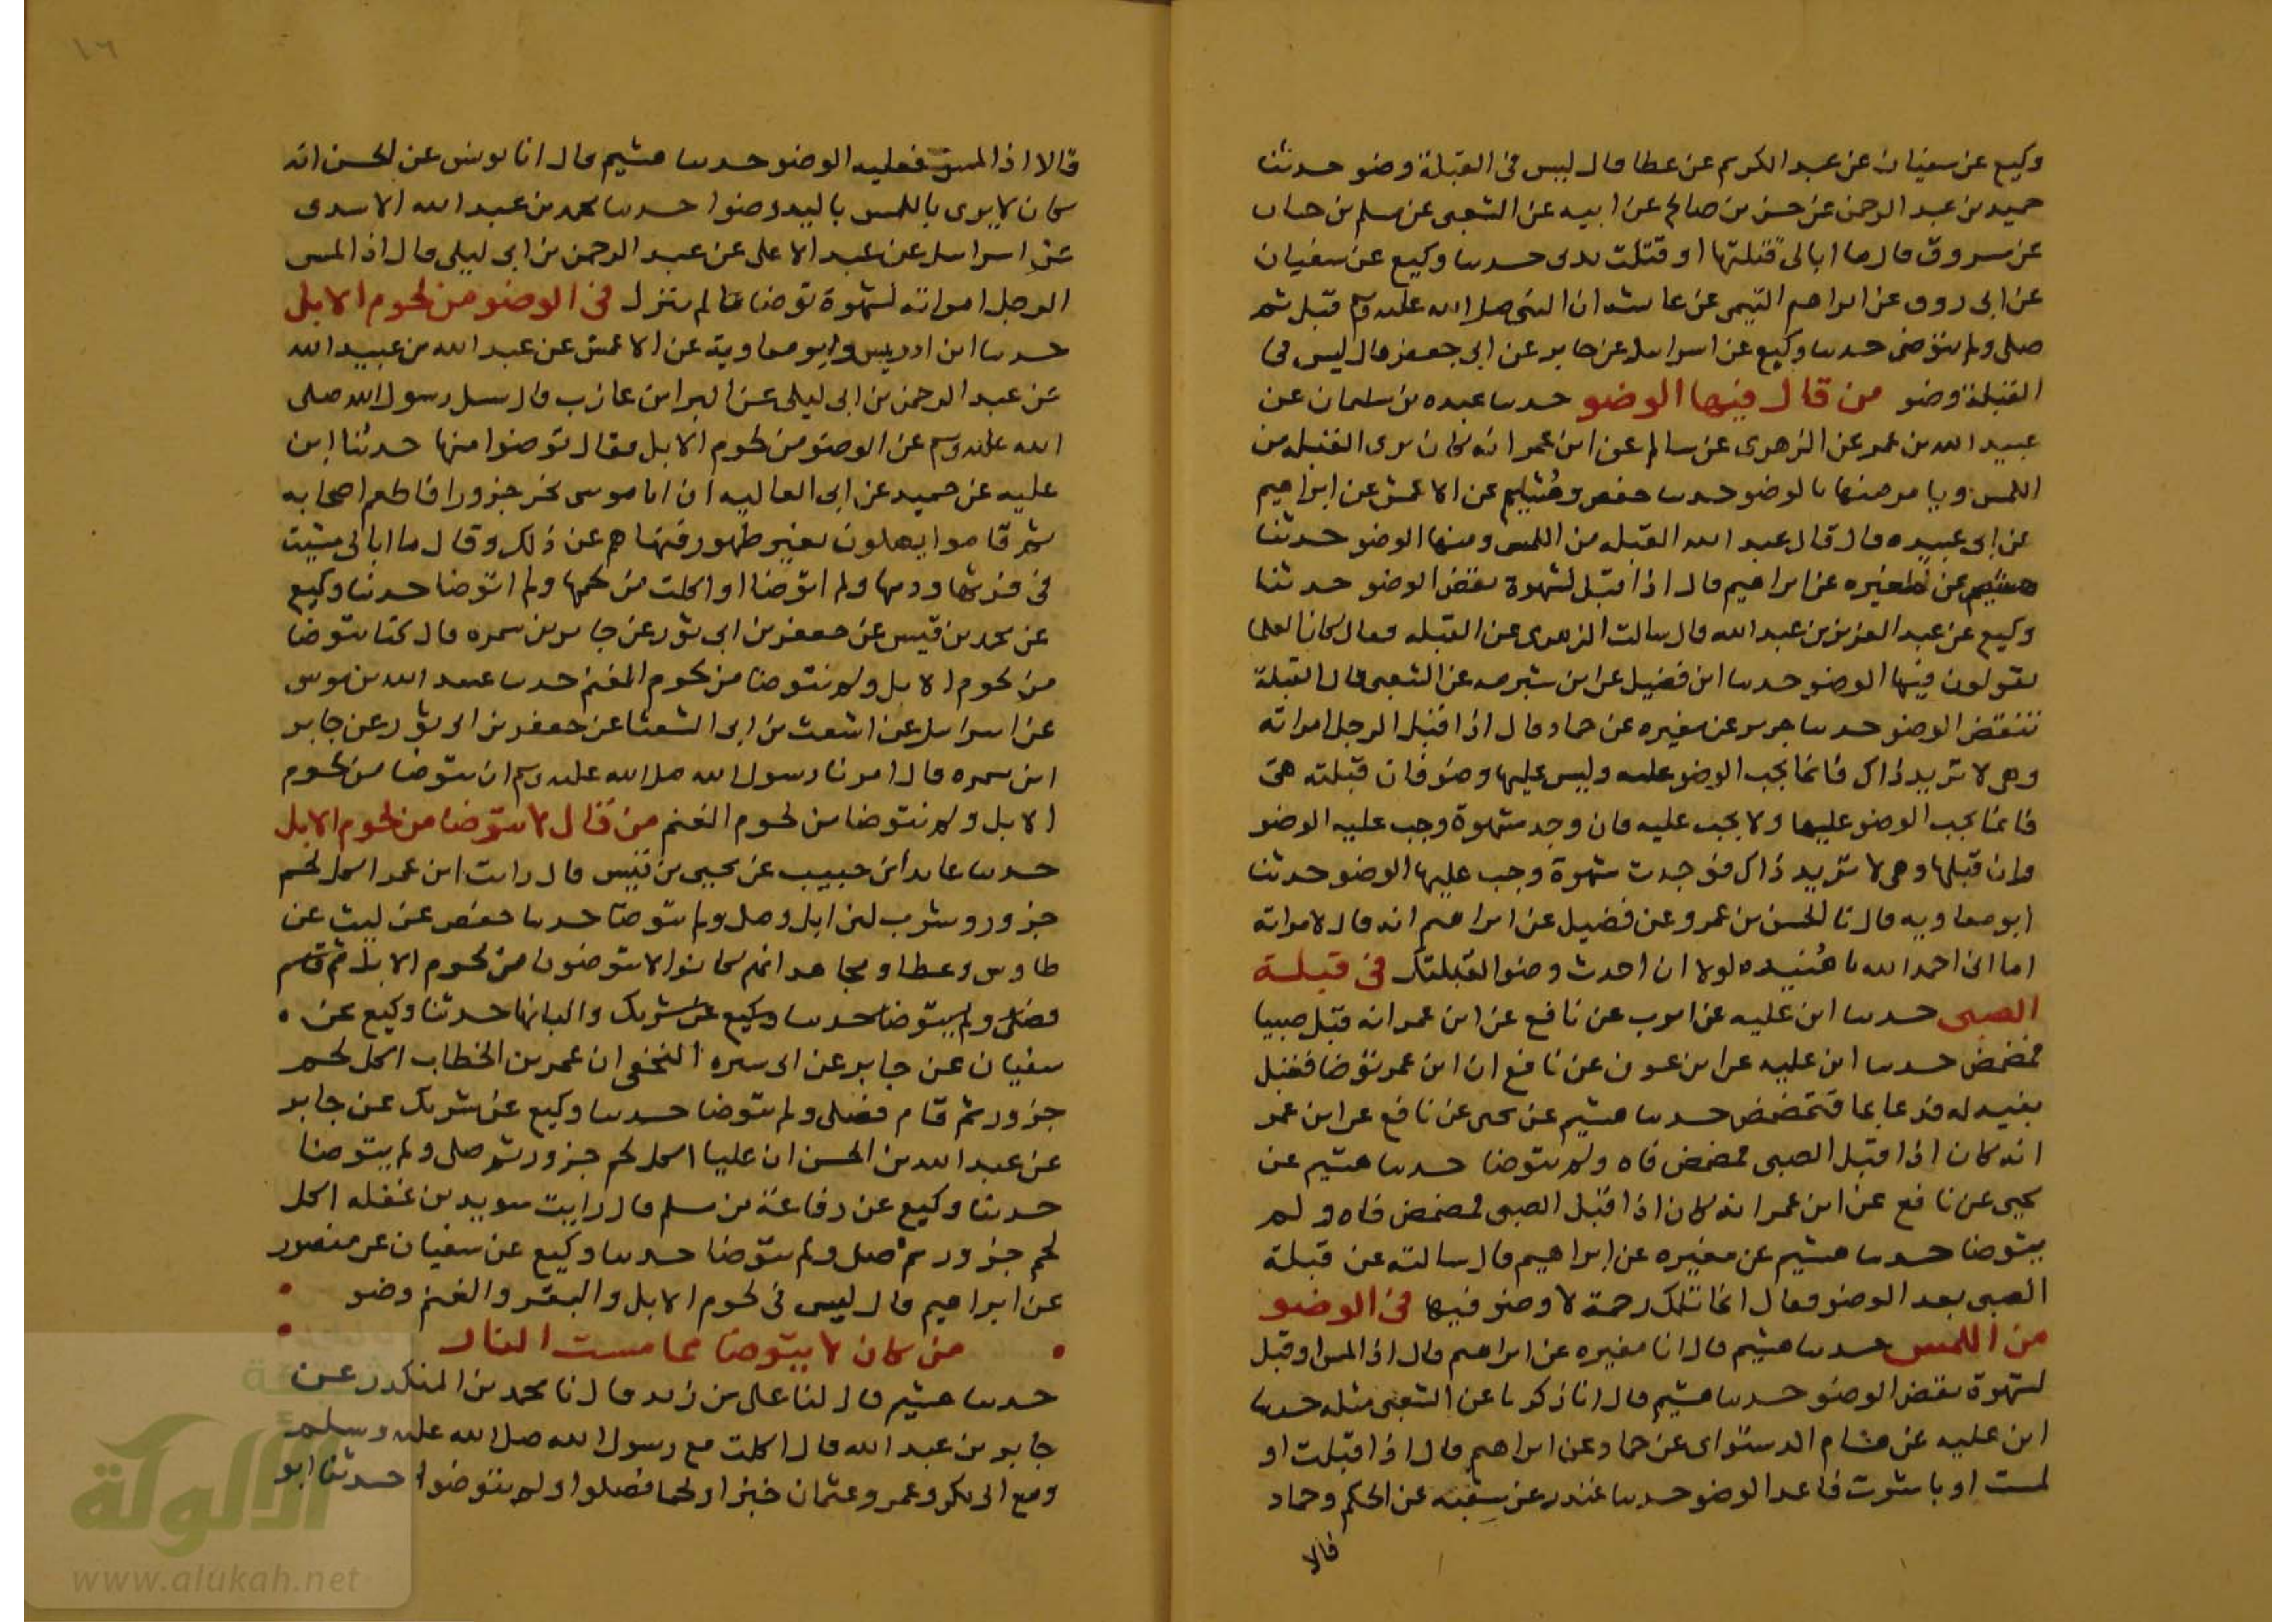 وكيع عن سفيان عن عبد الكريم عن عطا قال ليس في القبلة وضو حدثنا
حميد بن عبد الرحمن عن حسن بن صالح عن ابيه عن الشعبي عن مسلم بن حيان
عن مسروق قال ما ابالي قبلتها او قبلت يدي حدثنا وكيع عن سفيان
عن ابي روق عن ابراهيم التيمي عن عايشه ان النبي صلى الله عليه وسلم قبل ثم
صلى ولم يتوضى حدثنا وكيع عن اسرايل عن جابر عن ابي جعفر قال ليس في
القبلة وضو من قال فيها الوضو حدثنا عبده بن سليمان عن
عبيد الله بن عمر عن الزهري عن سالم عن ابن عمر انه كان يرى القبله من
اللمس ويامر منها بالوضو حدثنا حفص وهُشيم عن الاعمش عن ابراهيم
عن ابي عبيده قال قال عبد الله القبله من اللمس ومنها الوضو حدثنا
هشيم عن مغيره عن ابراهيم قال اذا قبل لشهوة نقض الوضو حدثنا
وكيع عن عبد العزيز بن عبد الله قال سالت الزهري عن القبله فقال كان العلما
يقولون فيها الوضو حدثنا ابن فضيل عن ابن شبرمه عن الشعبي قال القبلة
تنقض الوضو حدثنا جرير عن مغيره عن حماد قال اذا قبل الرجل امراته
وهي لا تريد ذاك فانما يجب الوضو عليه وليس عليها وضو فان قبلته هي
فانما يجب الوضو عليها ولا يجب عليه فان وجد شهوة وجب عليه الوضو
وان قبلها وهي لا تريد ذاك فوجدت شهوة وجب عليها الوضو حدثنا
ابو معاويه قال نا الحسن بن عمرو عن فضيل عن ابراهيم انه قال لامراته
اما اني احمد الله يا هُنيده لولا ان احدث وضوا لقبلتك في قبلة
الصبي حدثنا ابن عليه عن ايوب عن نافع عن ابن عمر انه قبل صبيا
فمضمض حدثنا ابن عليه عن ابن عون عن نافع ان ابن عمر توضا فقبل
بنيه له فدعا بما فتمضمض حدثنا هشيم عن يحيى عن نافع عن ابن عمر
انه كان اذا قبل الصبي فمضمض فاه ولم يتوضا حدثنا هشيم عن
يحيى عن نافع عن ابن عمر انه كان اذا قبل الصبي فمضمض فاه و لم
يتوضا حدثنا هشيم عن مغيره عن ابراهيم قال سالته عن قبلة
الصبي بعد الوضو فقال انما تلك رحمة لا وضو فيها في الوضو
من اللمس حدثنا هشيم قال انا مغيره عن ابراهيم قال اذا لمس او قبل
لشهوة نقض الوضو حدثنا هشيم قال انا زكريا عن الشعبي مثله حدثنا
ابن عليه عن هشام الدستواى عن حماد عن ابراهيم قال اذا قبلت او
لمست او باشرت فاعد الوضو حدثنا غندر عن شعبه عن الحكم وحماد
قالا
١٦
قالا اذا لمس فعليه الوضو حدثنا هشيم قال انا يونس عن الحسن انه
كان لا يرى باللمس باليد وضوا حدثنا محمد بن عبد الله الاسدي
عن اسرايل عن عبد الاعلى عن عبد الرحمن بن ابي ليلى قال اذا لمس
الرجل امراته لشهوة توضا ما لم ينزل في الوضو من لحوم الابل
حدثنا ابن ادريس وابو معاوية عن الاعمش عن عبد الله بن عبيد الله
عن عبد الرحمن بن ابي ليلى عن البرا بن عازب قال سيل رسول الله صلى
الله عليه وسلم عن الوضو من لحوم الابل فقال توضوا منها حدثنا ابن
عليه عن حميد عن ابي العاليه ان ابا موسى نحر جزورا فاطعم اصحابه
ثم قاموا يصلون بغير طهور فنهاهم عن ذلك وقال ما ابالي مشيت
في فرثها ودمها ولم اتوضا او اكلت من لحمها ولم اتوضا حدثنا وكيع
عن محمد بن قيس عن جعفر بن ابي ثور عن جابر بن سمره قال كنا نتوضا
من لحوم الابل ولا نتوضا من لحوم الغنم حدثنا عبيد الله بن موسى
عن اسرايل عن اشعث بن ابي الشعثا عن جعفر بن ابي ثور عن جابر
ابن سمره قال امرنا رسول الله صلى الله عليه وسلم ان نتوضا من لحوم
الابل ولا نتوضا من لحوم الغنم من قال لا يتوضا من لحوم الابل
حدثنا عايد ابن حبيب عن يحيى بن قيس قال رايت ابن عمر اكل لحم
جزور وشرب لبن ابل وصلى ولم يتوضا حدثنا حفص عن ليث عن
طاوس وعطا ومجاهد انهم كانوا لا يتوضون من لحوم الابل
والبانها حدثنا وكيع عن
سفيان عن جابر عن ابي سبره النخعي ان عمر بن الخطاب اكل لحم
جزور ثم قام فصلى ولم يتوضا حدثنا وكيع عن شريك عن جابر
عن عبد الله بن الحسن ان عليا اكل لحم جزور ثم صلى ولم يتوضا
حدثنا وكيع عن رفاعة بن سلم قال رايت سويد بن غفله اكل
لحم جزور ثم صلى ولم يتوضا حدثنا وكيع عن سفيان عن منصور
عن ابراهيم قال ليس في لحوم الابل والبقر والغنم وضو
من كان لا يتوضا مما مست النار
حدثنا هشيم قال لنا علي بن زيد قال نا محمد بن المنكدر عن
جابر بن عبد الله قال اكلت مع رسول الله صلى الله عليه وسلم
ومع ابي بكر وعمر وعثمان خبزا ولحما فصلوا ولم يتوضوا حدثنا ابو
الألوكة
www.alukah.net